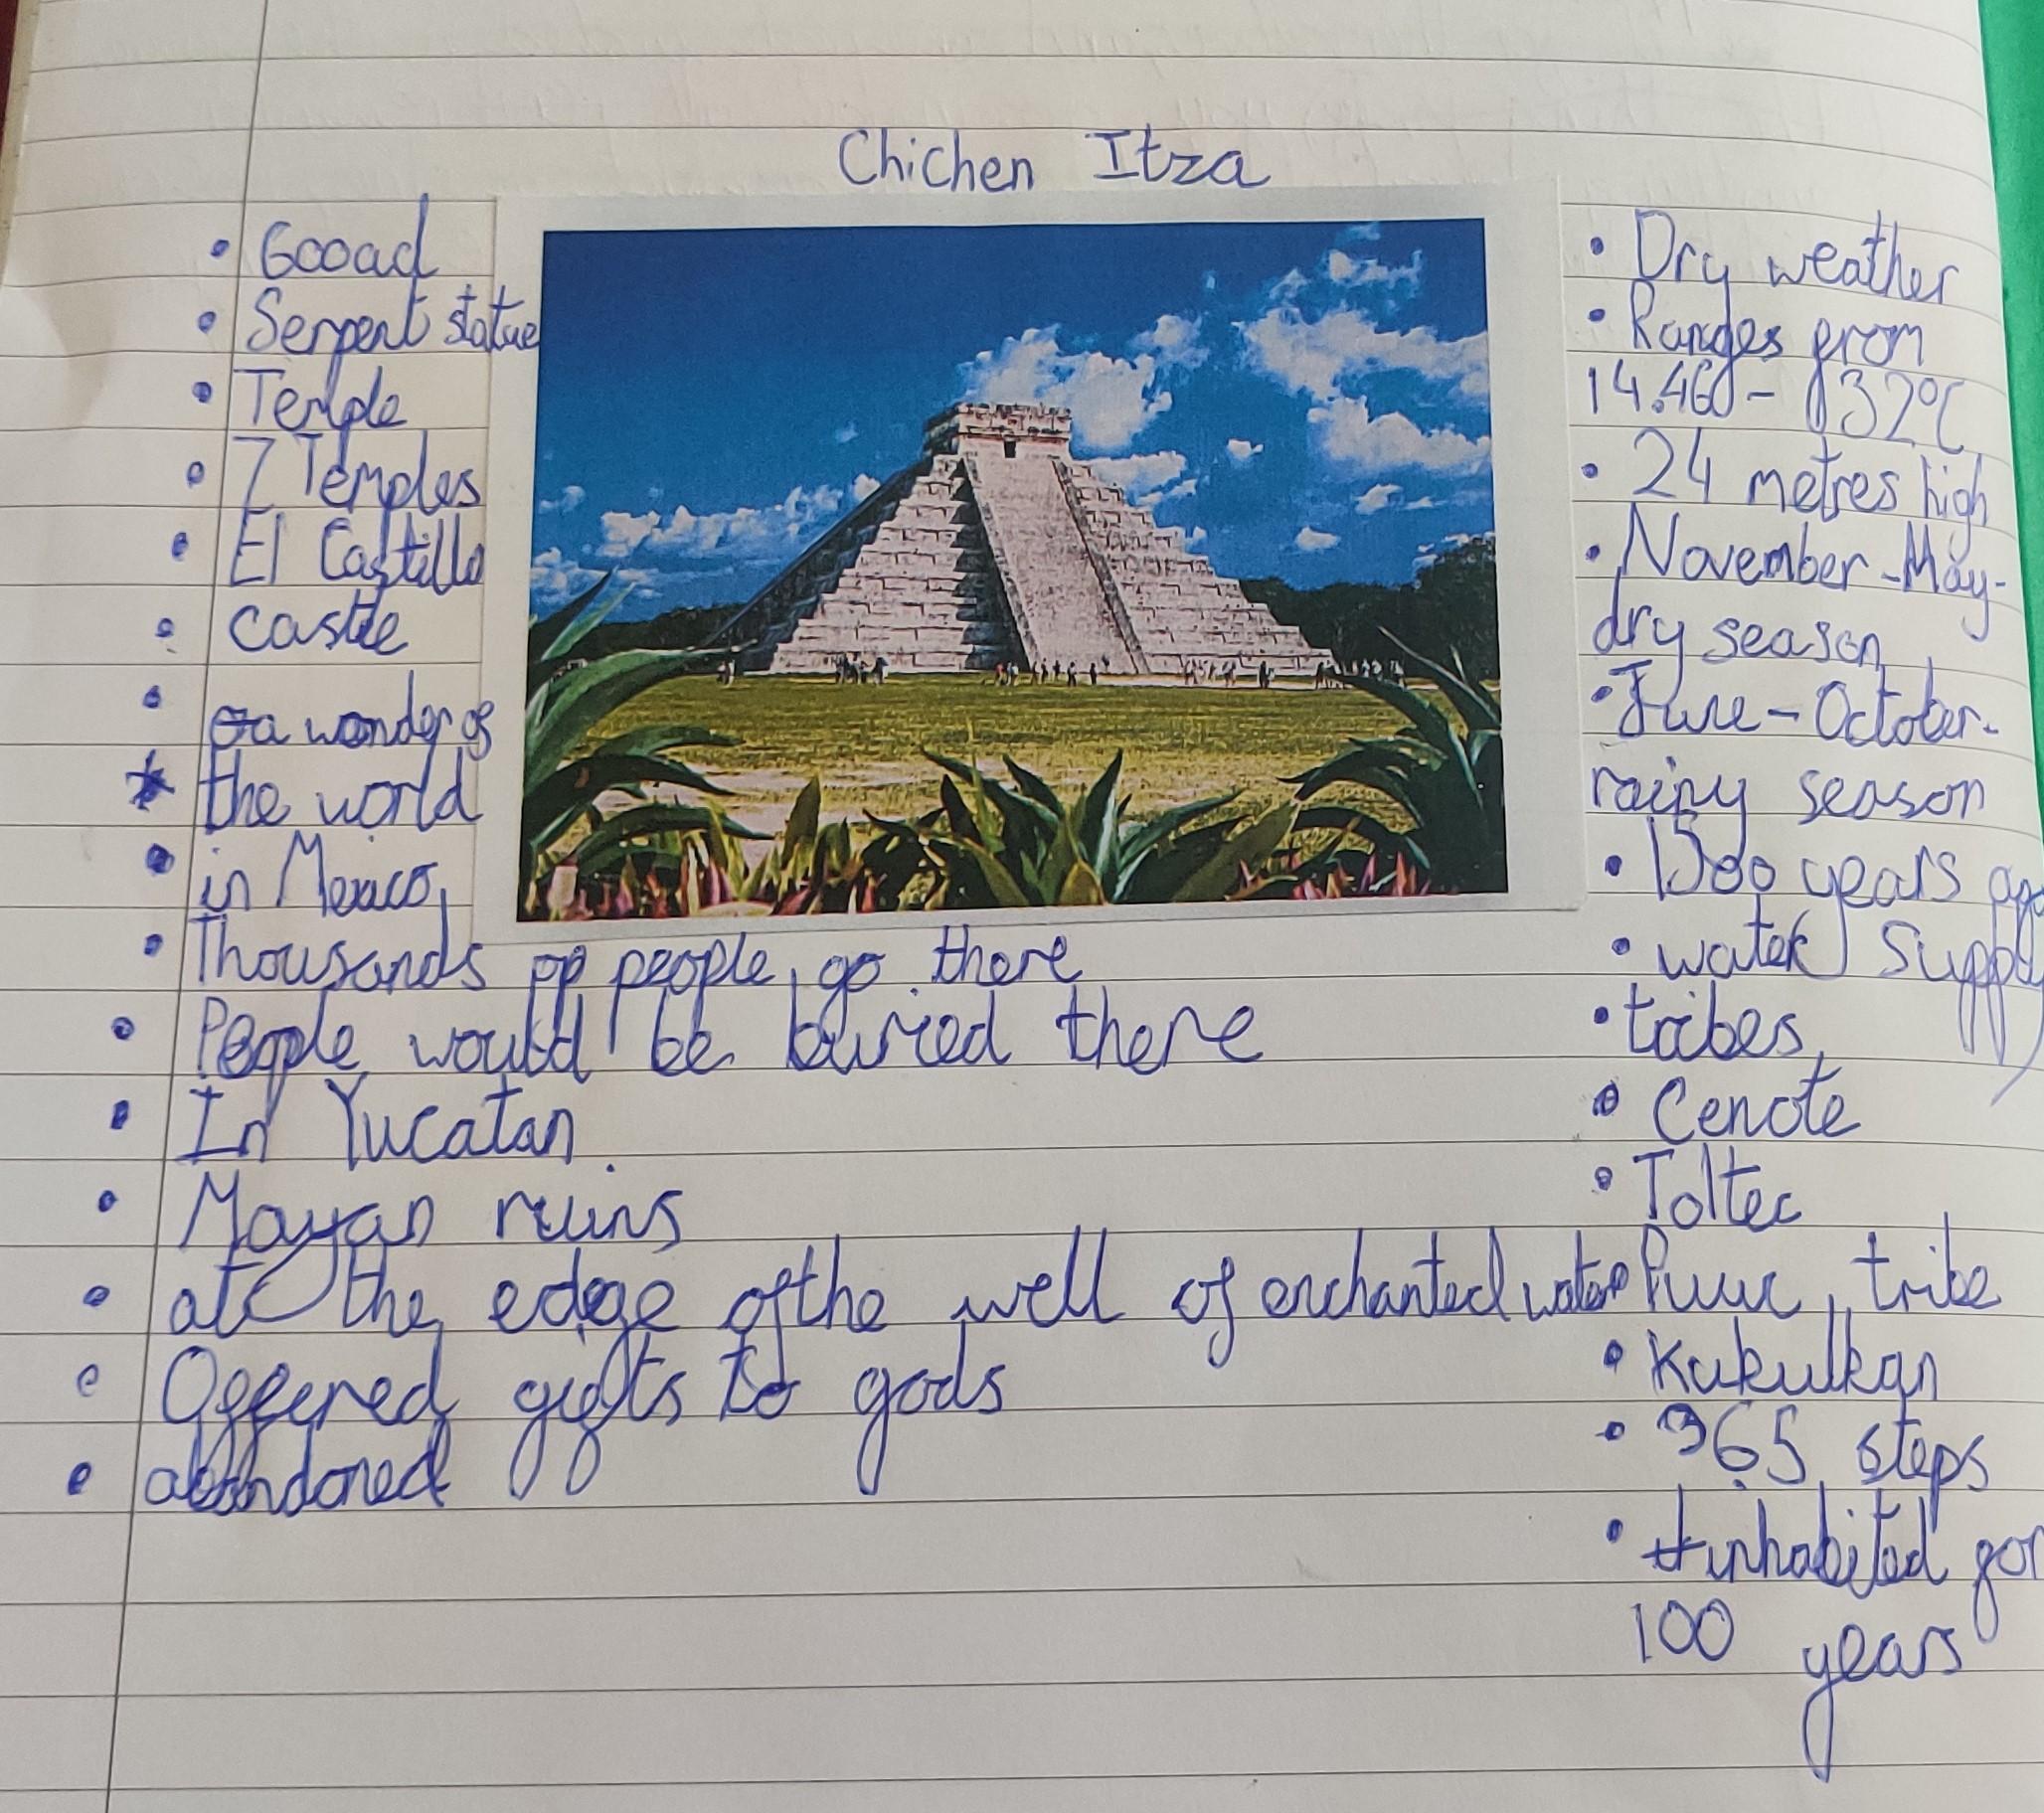 Chichen Itza
• 600ad
• Serpent statue
• Temple
• 7 Temples
• El Castillo
• castle
• a wonder of
* the world
• in Mexico
• Thousands of people go there
• People would be buried there
• In Yucatan
• Mayan ruins
• at the edge of the well of enchanted water
• Offered gifts to gods
• abandoned
• Dry weather
• Ranges from
- 32°C
• 24 metres high
• November - May -
dry season
• June - October -
rainy season
• 1500 years ago
• water supply
• tribes
• Cenote
• Toltec
Puuc tribe
• Kukulkan
• 365 steps
• inhabited for
100 years